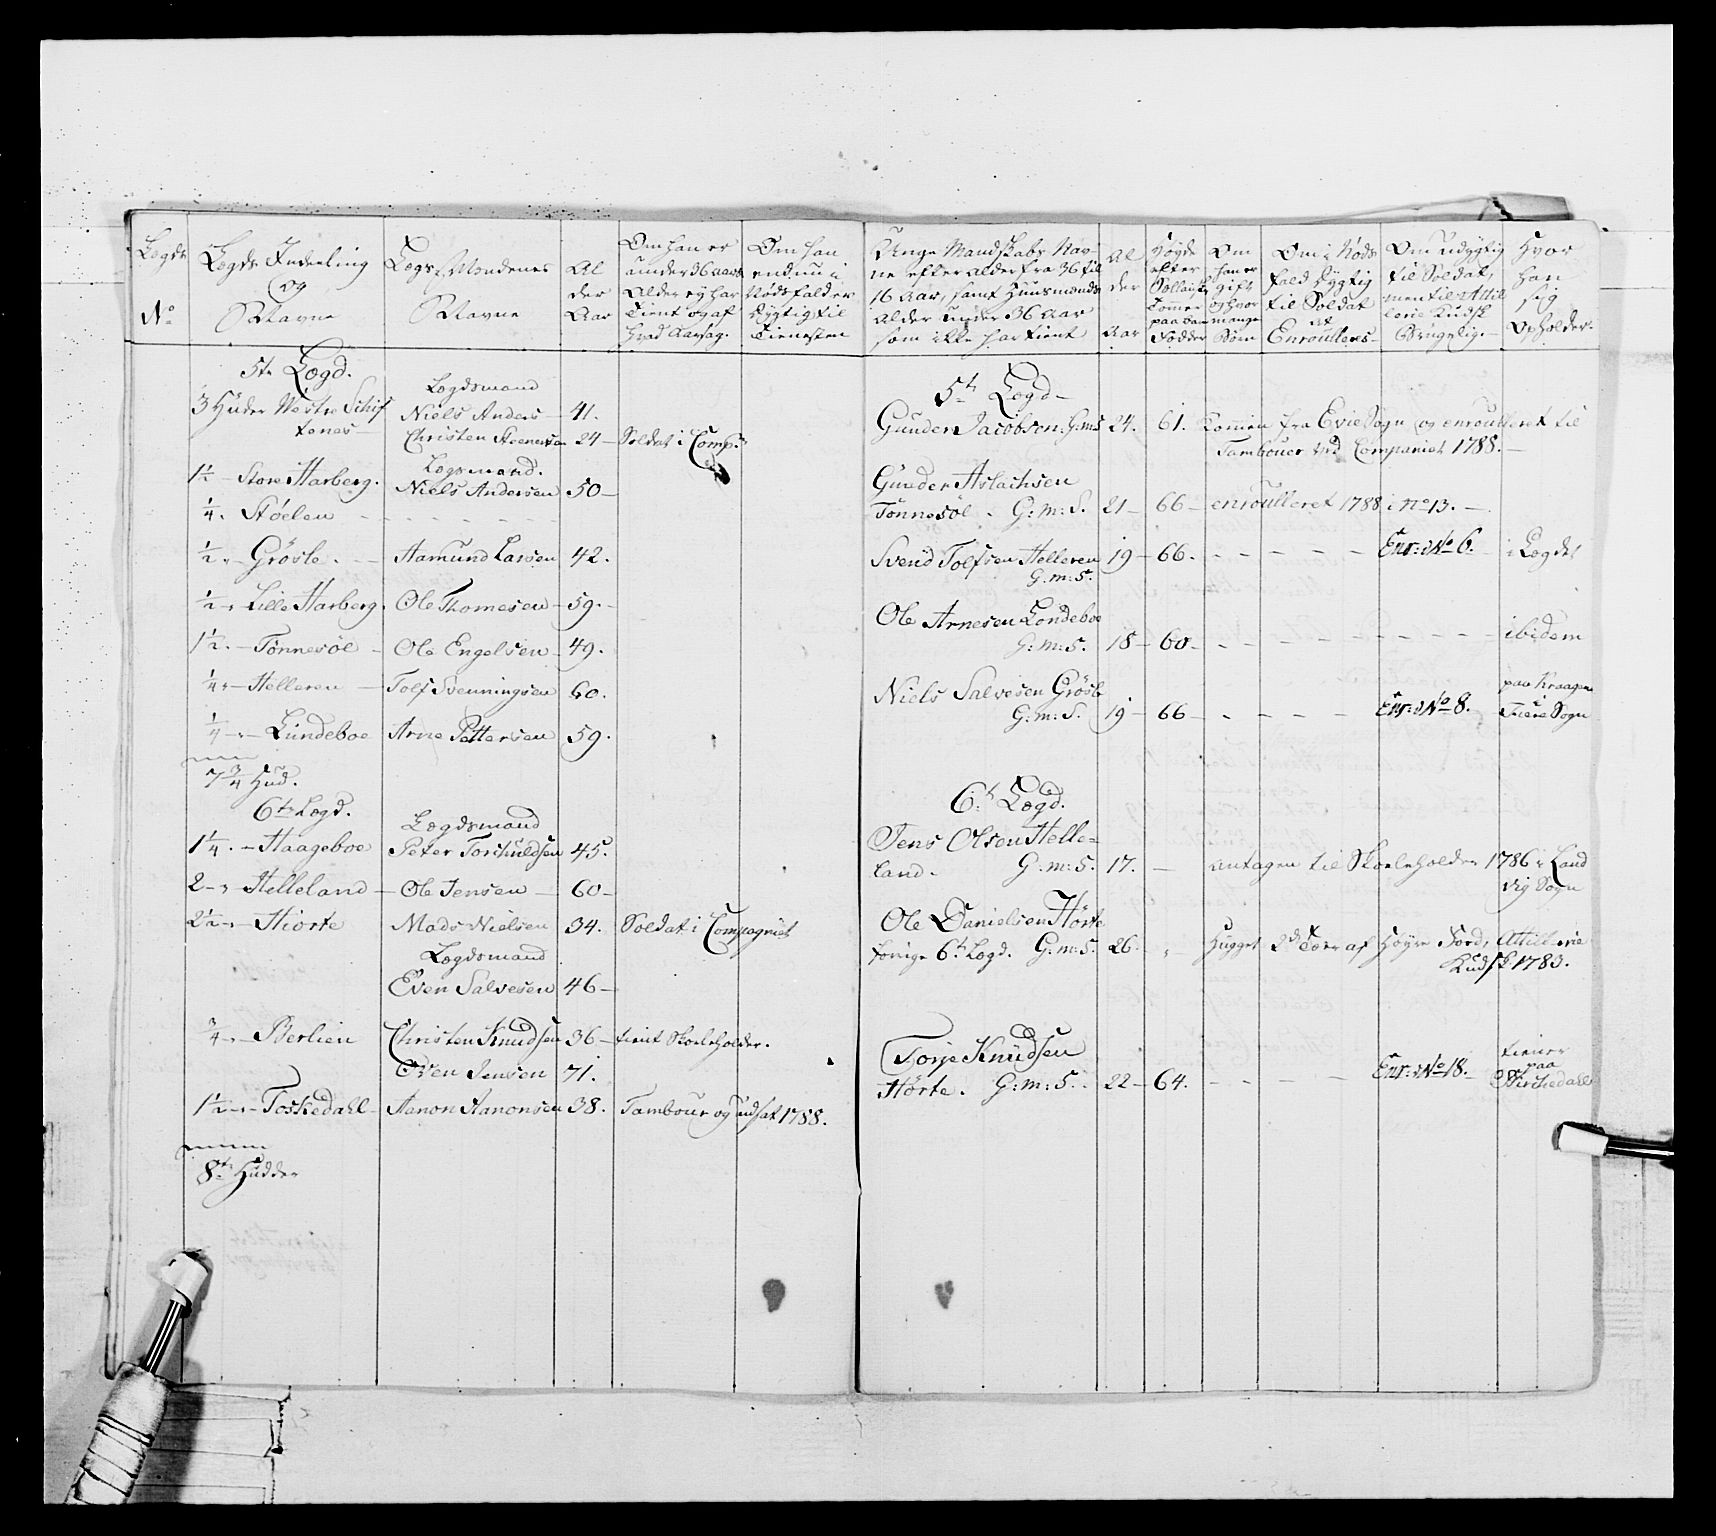 Lægds
No
Lægds Indeeling
og
Navne
Lægs-Mændenes
Navne
Al
der
Aar
Om han er
under 36 aars
Alder ej har
Tient og af
hvad Aarsag.
Om han
endnu i
Nødsfald er
dygtig til
Tienesten
5te Lægd.
3 Huder Westre Schif
tenes
Lægdsmand
Niels Anders 41.
Christen Steenersen 24 Soldat i Comp:
1½ Store Harberg.
Lægsmand.
Niels Andersen 50
¼. Stöelen
½ Grösle Aamund Larsen 42.
½ Lille Harberg. Ole Thomesen 59.
1½. Tønnesøl Ole Engelsen 49.
¼ Helleren Tolf Svenningsen 60.
¼ Lundeboe Arne Pettersen 59.
7¾ Hud.
6te Lægd.
Lægdsmand
1¼. Haageboe Peter Torchuldsen 45.
2 Helleland Ole Jensen 60
2½ Hiorte Mads Nielsen 34. Soldat i Compagniet
Lægdsmand
Even Salvesen 46
¾ Berlien Christen Knudsen 36 tient Skoeleholder.
Oven Jensen 71.
1½ Toskedahl Aanon Aanonsen 38. Tambour og udsat 1788.
8te Hudder
Unge Mandskabs Nav-
ne efter alder fra 36 til
16 Aar, samt Huusmænds
Alder under 36 Aar
som ikke har tient
Al
der
Aar
Høyde
efter
Sollandsk
Tommer
paa bare
Fødder
Om
han er
gift
og hvor
mange
Börn
Om i Nøds
fald dygtig
til Soldat
at
Enroulleres
Om Udygtig
til Soldat,
men til Attil
lerie Kudsk
Brugelig.
Hvor
han
sig
opholder.
5te Lægd
Gunder Jacobsen G:m:S 24. 61. Kommen fra Evie Sogn og enroulleret til
Tambouer ved Companiet 1788.
Gunder Aslachsen
Tønnesøl. G:m:S. 21 66 enroulleret 1788 i No 13.
Svend Tolfsen Helleren 19 66. Enr: No 6. i Lægdet
G:m:S.
Ole Arnesen Londeboe
G:m:S. 18 60 ibidem
Niels Salvesen Grösle
G:m:S. 19 66 Enr: No 8.
paa Kraagen
Fiere Sogn
6te Lægd.
Jens Olsen Helle-
land. G:m:S. 17. antagen til Skoeleholder 1786 i Land
vig Sogn
Ole Danielsen Hörte
forrige 6te Lægd. G:m:S. 26 hugget 2de Tæer af Høyre Foed, Attillerie
Kudsk 1783.
Torje Knudsen
Hörte. G:m:S. 22 64. Enr: No 18.
tiener
paa
Birchedahl